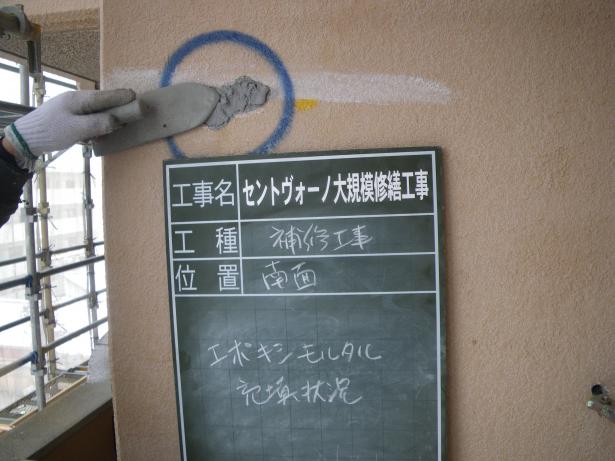 工事名 セントヴォーノ大規模修繕工事
工種 補修工事
位置 南面
エポキシモルタル
充填状況